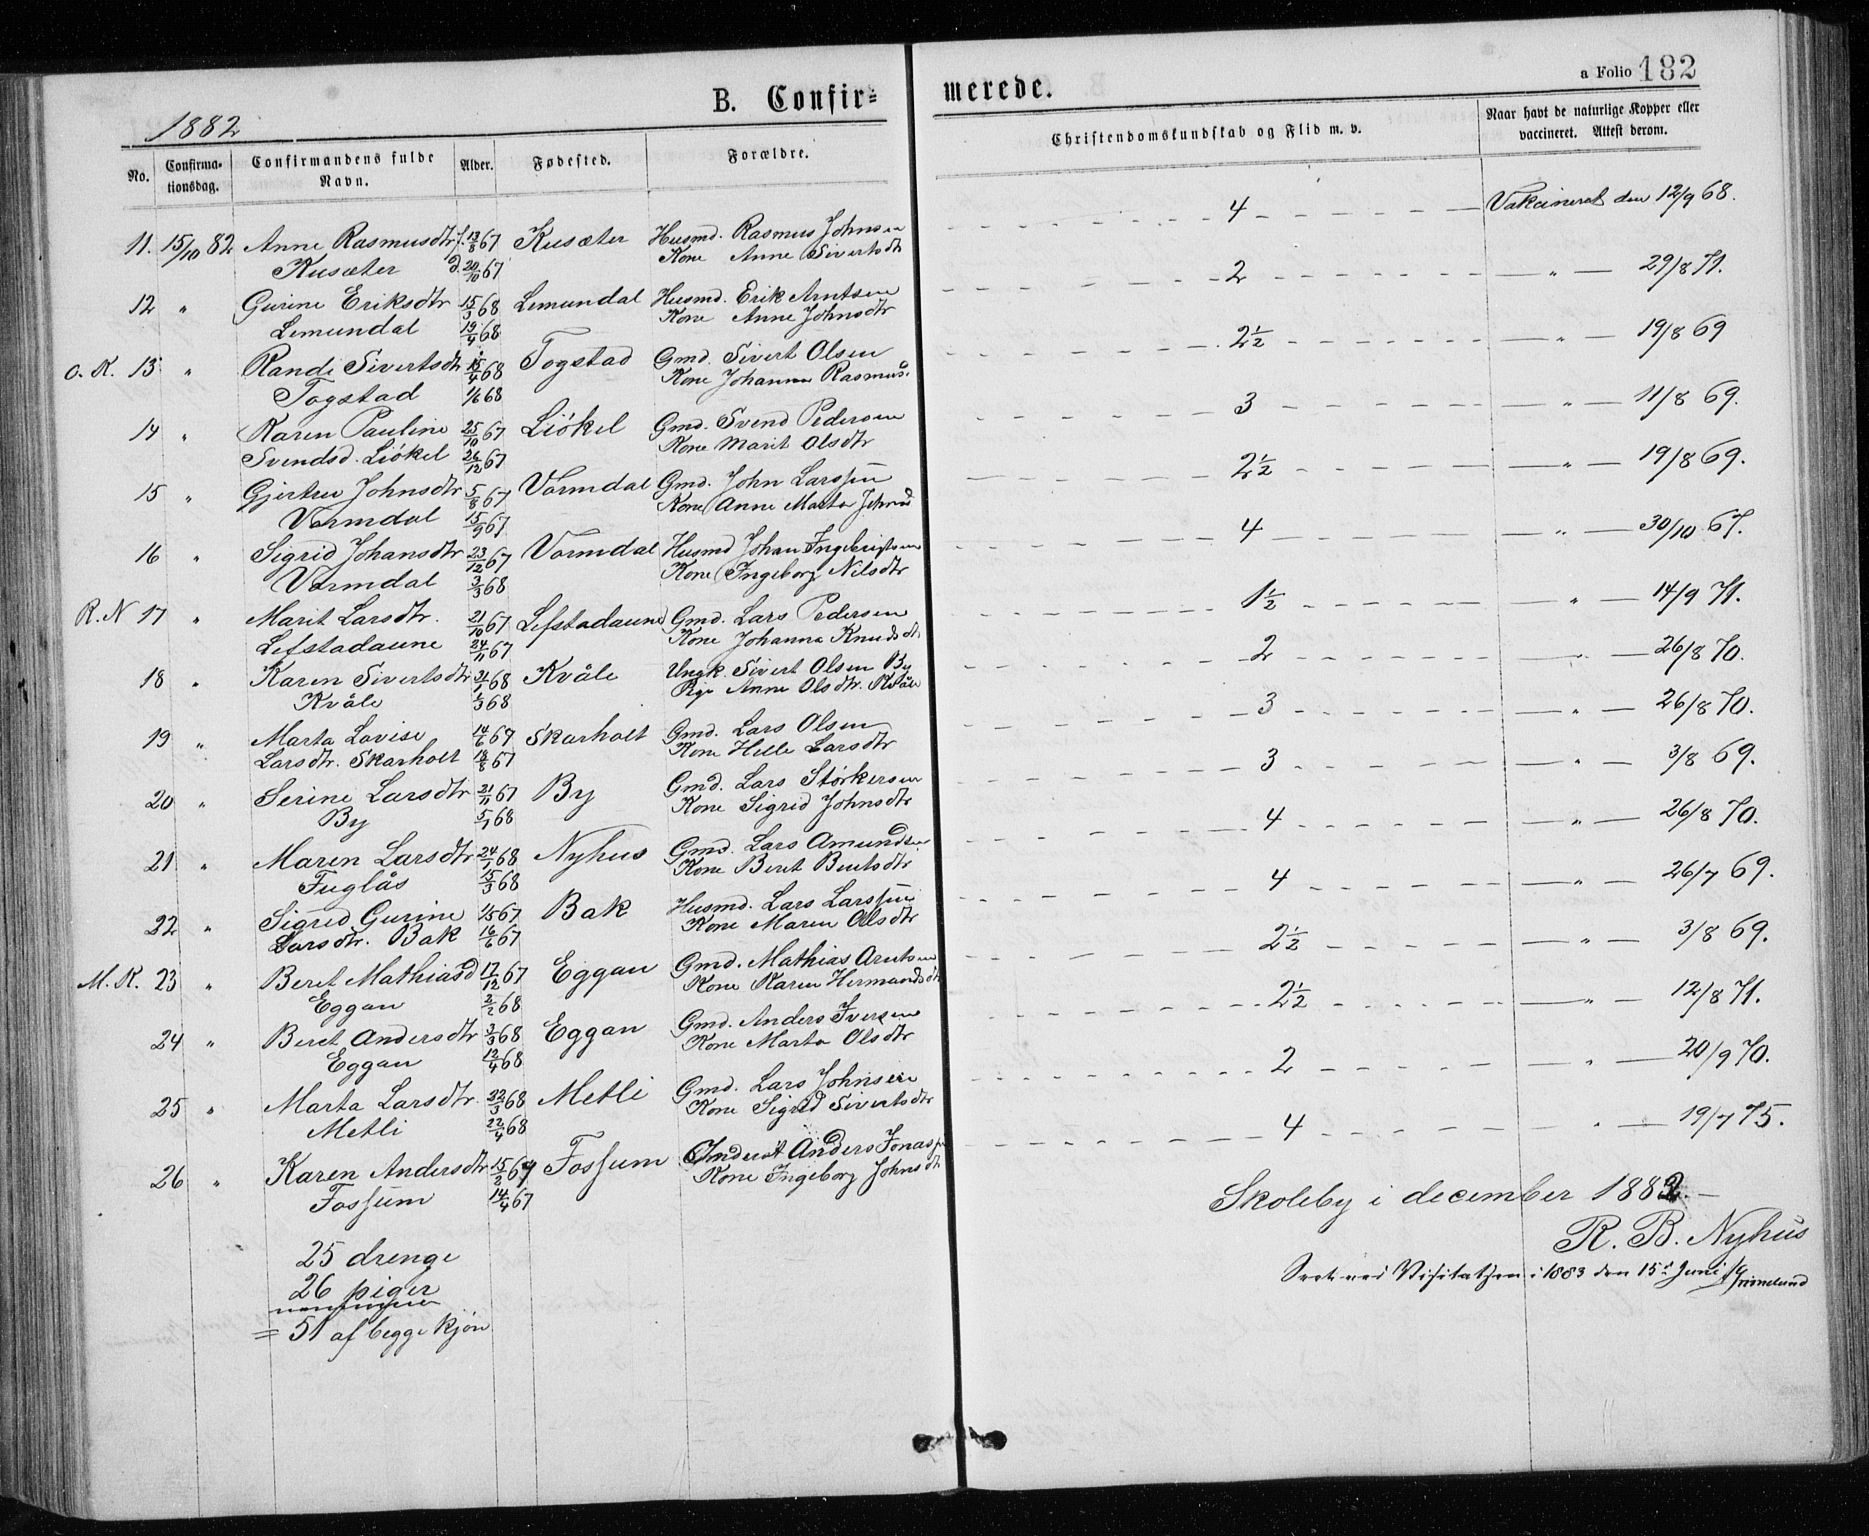 B. Confir-
merede.
a Folio 182
1882
No.
Confirma-
tionsdag.
Confirmandens fulde
Navn.
Alder.
Fødested.
Forældre.
Christendomskundskab og Flid m. v.
Naar havt de naturlige Kopper eller
vaccineret. Attest derom.
11. 15/10 82 Anne Rasmusdtr f. 13/8 67 Kusæter Husmd. Rasmus Johnsen 4 Vakcineret den 12/9 68.
Kusæter d. 20/10 67 Kone Anne Sivertsdtr
12 " Gurine Eriksdtr 15/3 68 Lemundal Husmd. Erik Arntsen 2 — " — 29/8 71.
Lemundal 19/4 68 Kone Anne Johnsdtr
O. K. 13 " Randi Sivertsdtr 15/4 68 Togstad Gmd. Sivert Olsen 2½ — " — 19/8 69
Togstad 1/6 68 Kone Johanna Rasmus.
14 " Karen Pauline 25/10 67 Liökel Gmd. Svend Pedersen 3 — " — 11/8 69.
Svendsd. Liökel 26/12 67 Kone Marit Olsdtr
15 " Gjertru Johnsdtr 5/8 67 Vormdal Gmd. John Larssen 2½ — " — 19/8 69.
Vormdal 15/9 67 Kone Anne Marta Johnsd
16 " Sigrid Johansdtr 23/12 67 Vormdal Husmd Johan Ingebrigtsen 4 " — 30/10 67.
Vormdal 3/3 68 Kone Ingeborg Nilsdtr
R. N 17 " Marit Larsdtr. 21/10 67 Lefstadaune Gmd. Lars Pedersen 1½ " — 14/9 71.
Lefstadaune 24/11 67 Kone Johanna Knudsdt
18 " Karen Sivertsdtr 21/1 68 Kvåle Ungk. Sivert Olsen By 2 " — 26/8 70.
Kvåle 1/3 68 Pige Anne Olsdtr. Kvåle
19 " Marta Lovise 14/6 67 Skarholt Gmd. Lars Olsen 3 — " — 26/8 70.
Larsdtr. Skarholt 18/8 67 Kone Helle Larsdtr
20 " Serine Larsdtr 21/11 67 By Gmd. Lars Störkersen 3 — " — 3/8 69.
By 5/1 68 Kone Sigrid Johnsdtr
21 " Maren Larsdtr 24/1 68 Nyhus Gmd. Lars Amundsen 4 — " — 26/8 70.
Fuglås 15/3 68 Kone Beret Bentsdtr
22 " Sigrid Gurine 1/5 67 Bak Husmd. Lars Larssen 4 — " — 26/7 69.
Larsdtr. Bak 16/6 67 Kone Maren Olsdtr
M. K. 23 " Beret Mathiasd 17/12 67 Eggan Gmd. Mathias Arntsen 2½ — " — 3/8 69.
Eggan 2/2 68 Kone Karen Hermandsdt
24 " Beret Andersdtr 3/3 68 Eggan Gmd. Anders Iversen 2½ — " — 12/8 71.
Eggan 12/4 68 Kone Marta Olsdtr
25 " Marta Larsdtr. 22/3 68 Metli Gmd. Lars Johnsen 2 " — 20/9 70.
Metli 22/4 68 Kone Sigrid Sivertsdtr
26 " Karen Andersdtr 15/2 67 Fossum Anders Jonas 4 " — 19/7 75.
Fossum 14/4 67 Kone Ingeborg Johnsdt
25 drenge
26 piger
= 51 af begge kjøn
Skoleby i december 1882.
R. B. Nyhus
Seet ved Visitatsen i 1883 den 15d Juni Grimelund